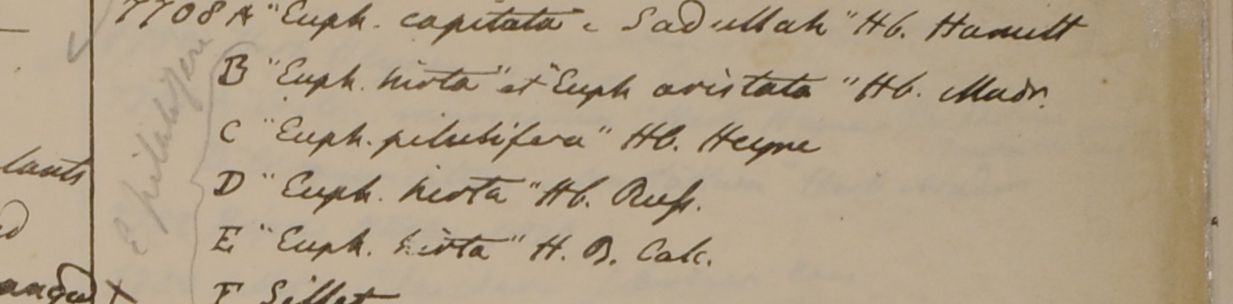 7708 A "Euph. capitata c Sadullah" Hb. Hamilt
B "Euph. hirta" et "Euph aristata" Hb. Madr.
C "Euph. pilulifera" Hb. Heyne
D "Euph. hirta" Hb. Russ.
E "Euph. hirta" H. B. Calc.
F Sillet
E pilulifera
lants